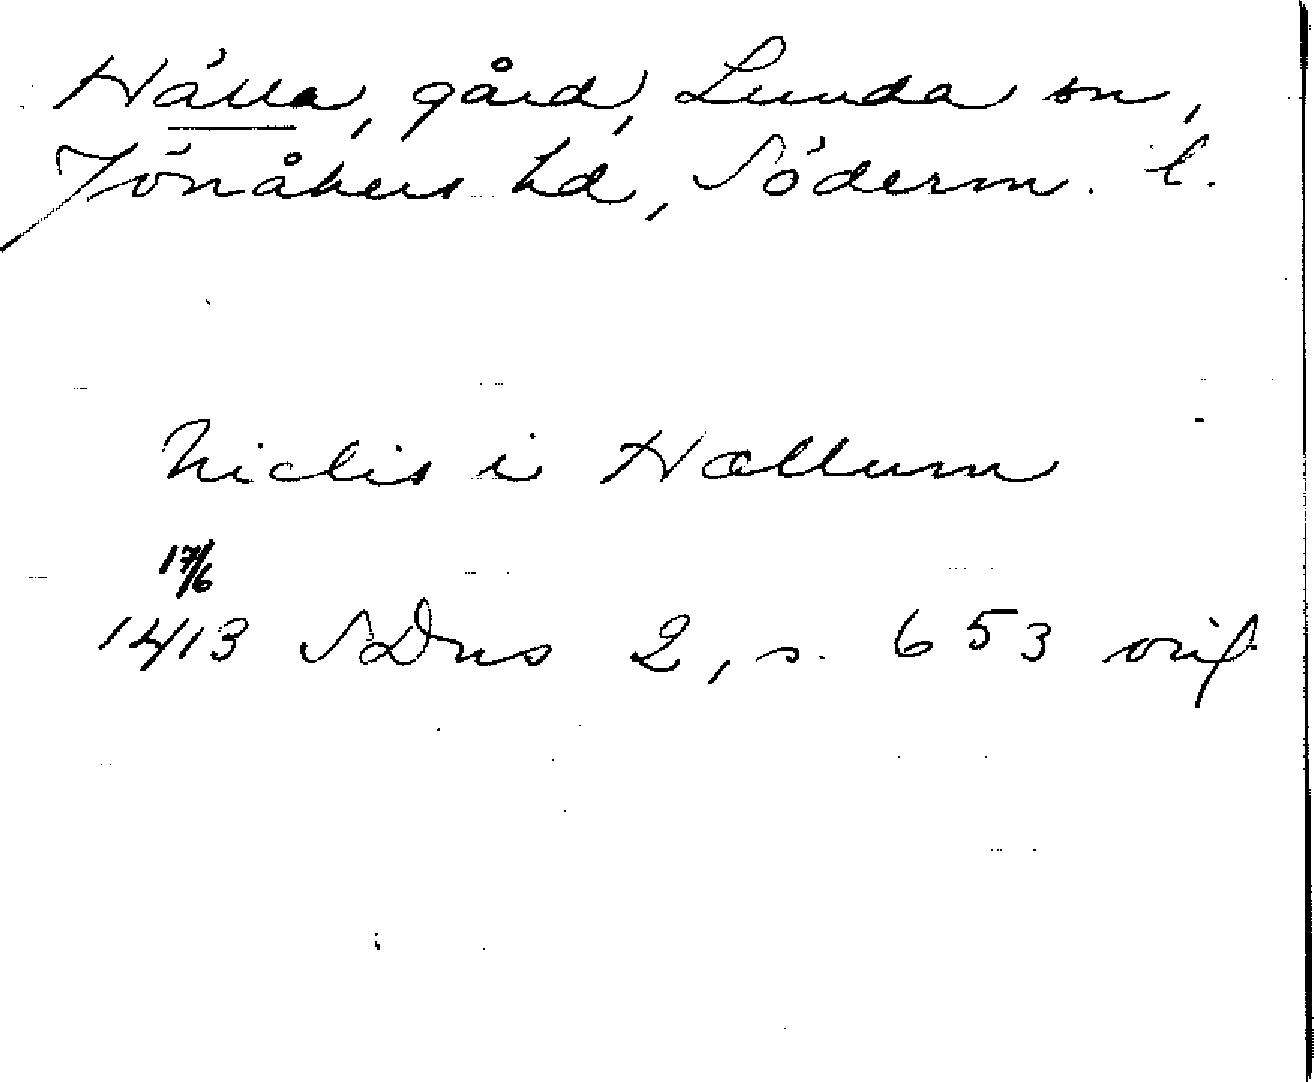 Hälla, gård, Lunda sn,
Jönåkers hd, Söderm. l.
Niclis i Hællum
17/6
1413 SDns 2, s. 653 orig.